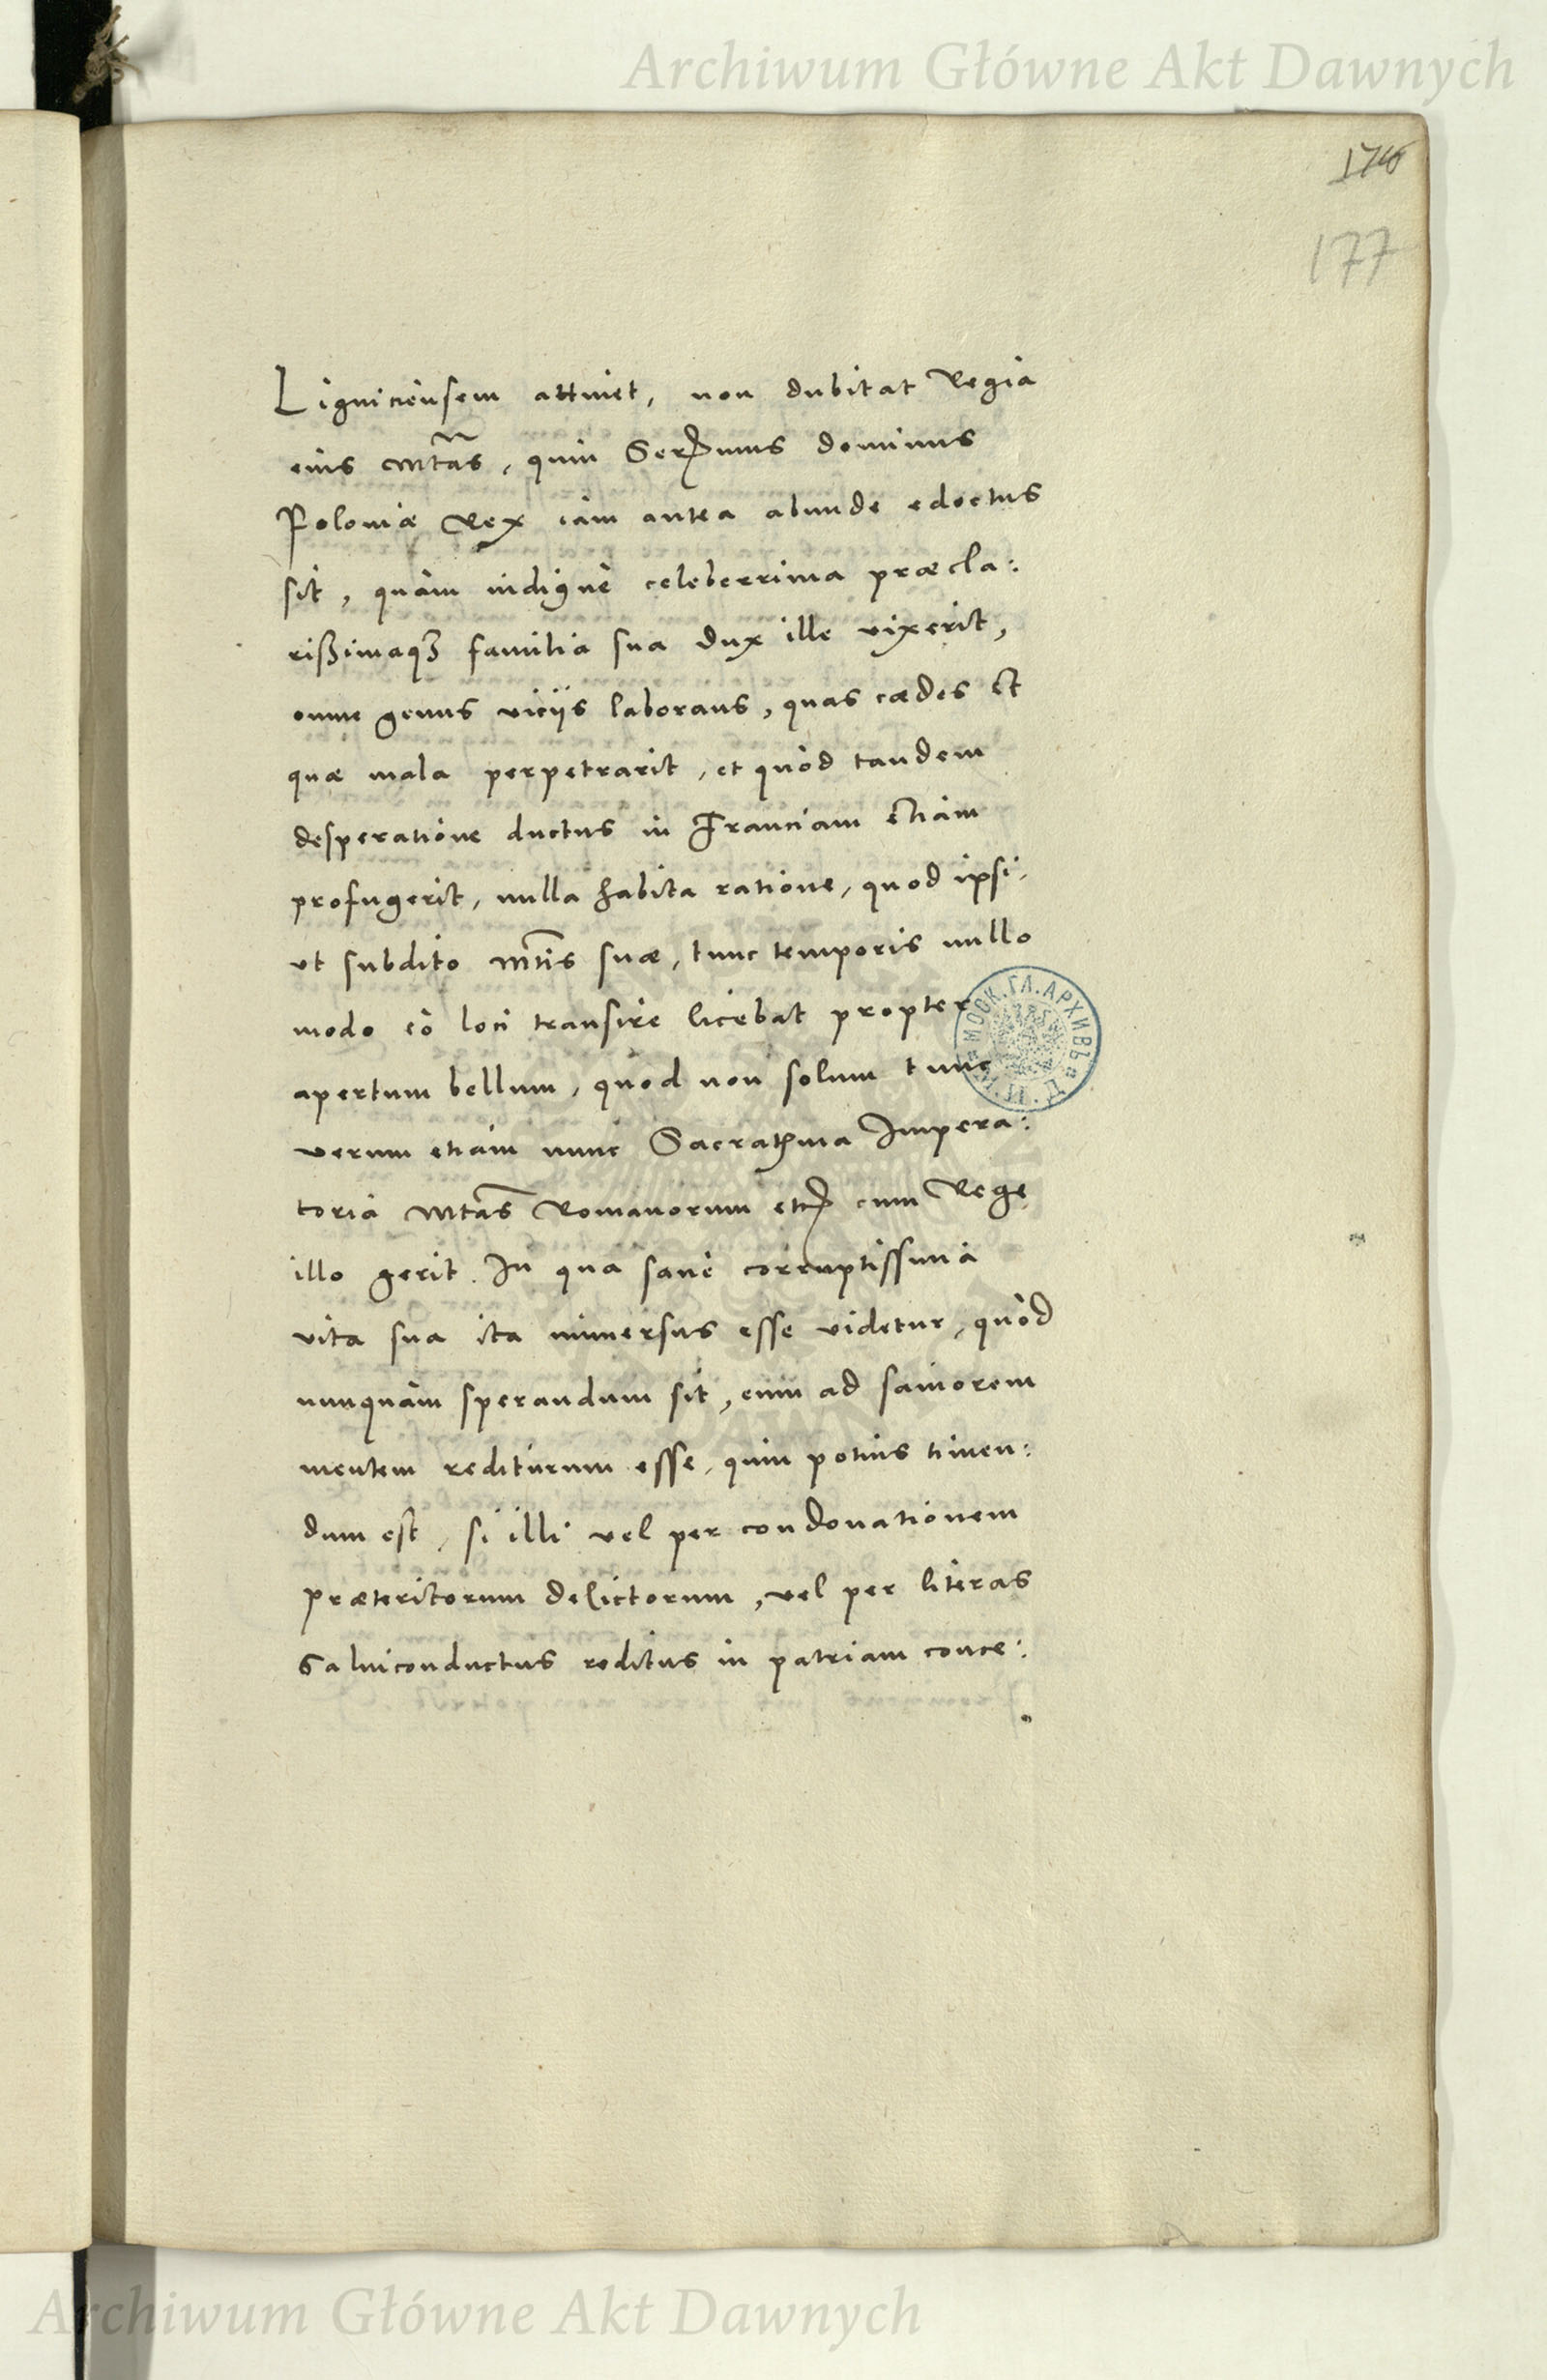 Archiwum Główne Akt Dawnych
176
177
Ligniciensem attinet, non dubitat Regia
eius Mtas, quin Serenmus dominus
Poloniæ Rex iam antea abunde edoctus
sit, quàm indignè celeberrima præcla:
rißimaqȝ familia sua dux ille vixerit,
omne genus vicijs laborans, quas cædes et
quæ mala perpetrarit, et quòd tandem
desperatione ductus in Franciam etiam
profugerit, nulla habita ratione, quod ipsi,
vt subdito Mtis suæ, tunc temporis nullo
modo eò loci transire licebat propter
apertum bellum, quod non solum tunc
verum etiam nunc Sacratma Impera:
toria Mtas Romanorum etc cum Rege
illo gerit. In qua sanè corruptissima
vita sua ita immersus esse videtur, quòd
nunquàm sperandum sit, eum ad saniorem
mentem rediturum esse, quin potius timen:
dum est, si illi vel per condonationem
præteritorum delictorum, vel per literas
Saluiconductus reditus in patriam conce:
МОСК. ГЛ. АРХИВЪ
Archiwum Główne Akt Dawnych